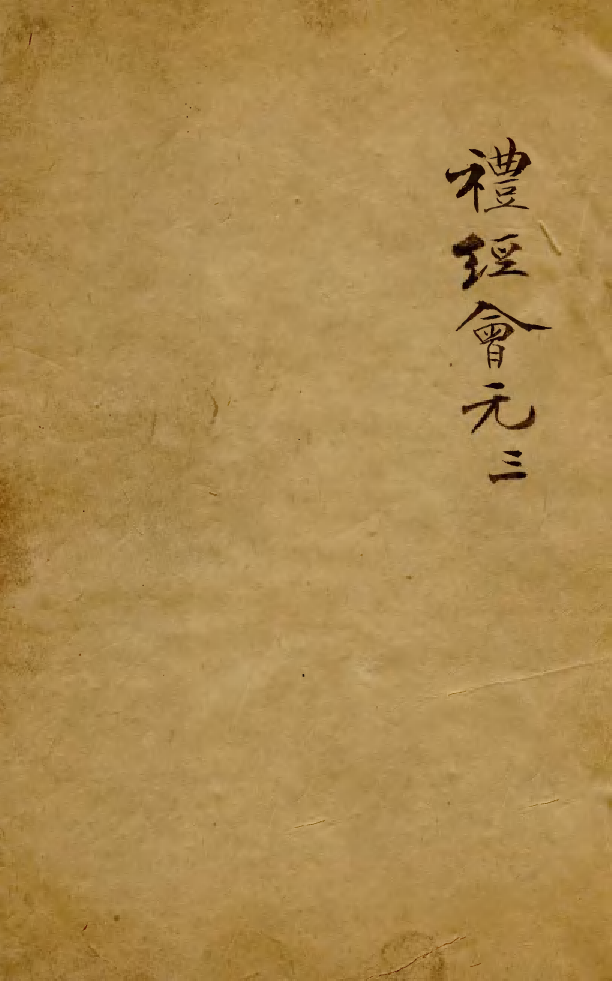 禮經會元三